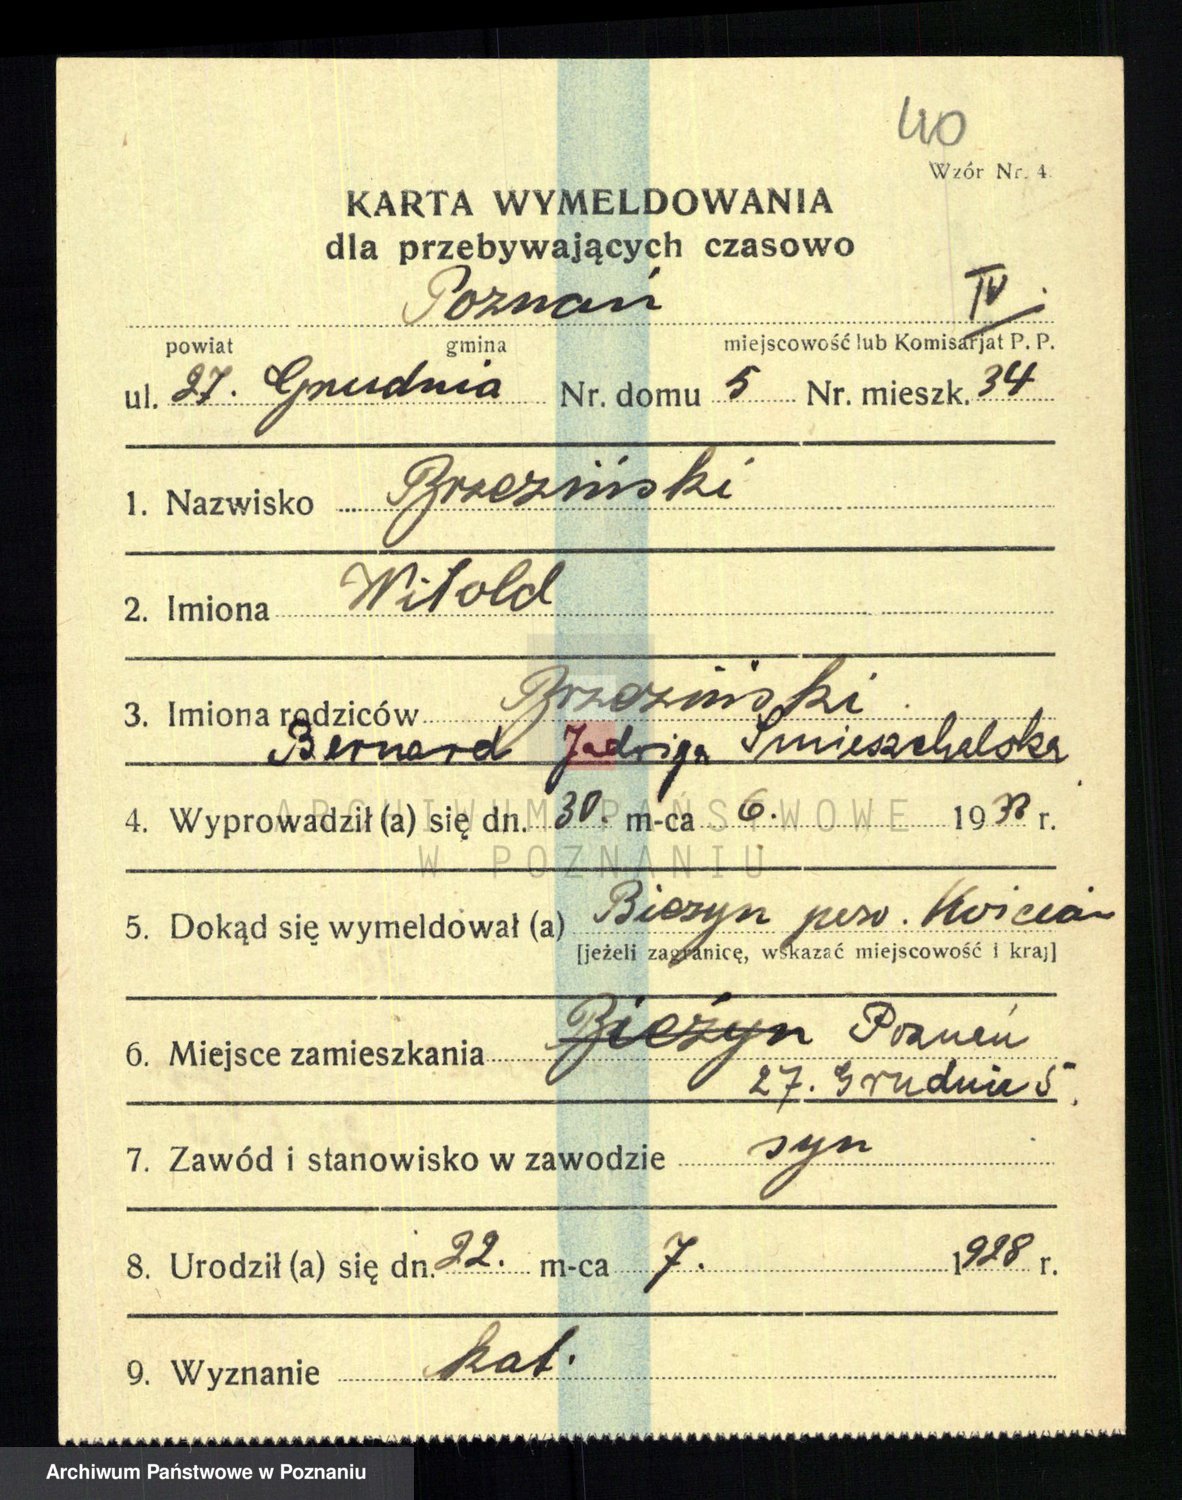 40
Wzór Nr. 4.
KARTA WYMELDOWANIA
dla przebywających czasowo
Poznań IV.
powiat gmina miejscowość lub Komisarjat P. P.
ul. 27. Grudnia Nr. domu 5 Nr. mieszk. 34
1. Nazwisko Brzeziński
2. Imiona Witold
3. Imiona rodziców Brzeziński
Bernard Jadwiga Śmieszchalska
4. Wyprowadził (a) się dn. 30. m-ca 6. 1938 r.
5. Dokąd się wymeldował (a) Bieżyn pow. Kościan
[jeżeli zagranicę, wskazać miejscowość i kraj]
6. Miejsce zamieszkania Bieżyn Poznań
27. Grudnia 5.
7. Zawód i stanowisko w zawodzie syn
8. Urodził (a) się dn. 22. m-ca 7. 1928 r.
9. Wyznanie kat.
ARCHIWUM PAŃSTWOWE
W POZNANIU
Archiwum Państwowe w Poznaniu